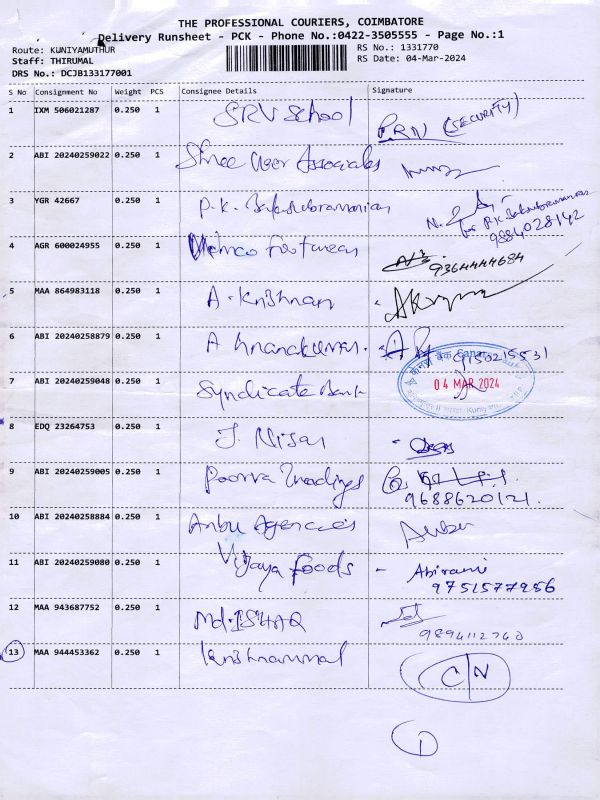 THE PROFESSIONAL COURIERS, COIMBATORE
Delivery Runsheet - PCK - Phone No.:0422-3505555 - Page No.:1
Route: KUNIYAMUTHUR
Staff: THIRUMAL
DRS No.: DCJB133177001
RS No.: 1331770
RS Date: 04-Mar-2024
S No Consignment No Weight PCS Consignee Details Signature
1 IXM 506021287 0.250 1 SRV School PRN (SECURITY)
2 ABI 20240259022 0.250 1 Shree Veer Associates
3 YGR 42667 0.250 1 P.K. Balasubramanian
for P.K. Balasubramanian
9884028142
4 AGR 600024955 0.250 1 Metmco Footwear
9364444684
5 MAA 864983118 0.250 1 A. Krishnan
6 ABI 20240258879 0.250 1 A Gnanakumar.
9150215531
7 ABI 20240259048 0.250 1 Syndicate Bank
केनरा बैंक Canara
04 MAR 2024
8 EDQ 23264753 0.250 1 J. Nisar
9 ABI 20240259005 0.250 1 Poorva Tradings
9688620121.
10 ABI 20240258884 0.250 1 Anbu Agencies
11 ABI 20240259080 0.250 1 Vijaya Foods - Abirami
9751577956
12 MAA 943687752 0.250 1 Md. ISHAQ
9894112760
13 MAA 944453362 0.250 1 Krishnammal C/N
1